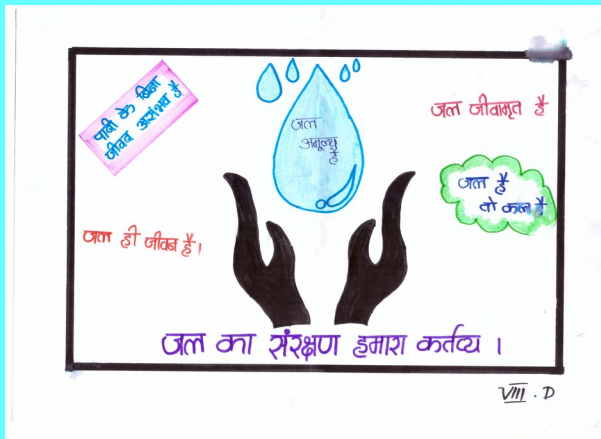 पानी के बिना
जीवन असंभव है
जल
अमूल्य
है
जल जीवामृत है
जल है
तो कल है
जल ही जीवन है।
जल का संरक्षण हमारा कर्तव्य ।
VIII . D